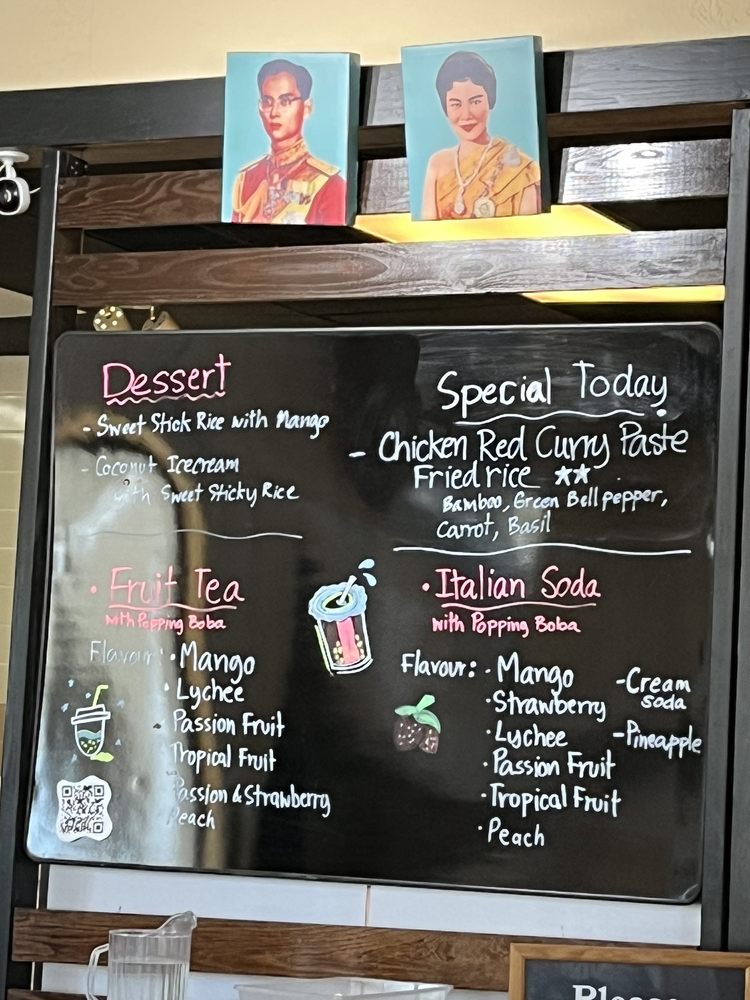 Dessert
- Sweet Stick Rice with Mango
- Coconut Icecream
with Sweet Sticky Rice
Special Today
- Chicken Red Curry Paste
Fried rice ★★
Bamboo, Green Bell pepper,
Carrot, Basil
• Fruit Tea
with Popping Boba
Flavour: • Mango
• Lychee
Passion Fruit
Tropical Fruit
Passion & Strawberry
Peach
• Italian Soda
with Popping Boba
Flavour: • Mango
• Strawberry
• Lychee
• Passion Fruit
• Tropical Fruit
• Peach
- Cream
soda
- Pineapple